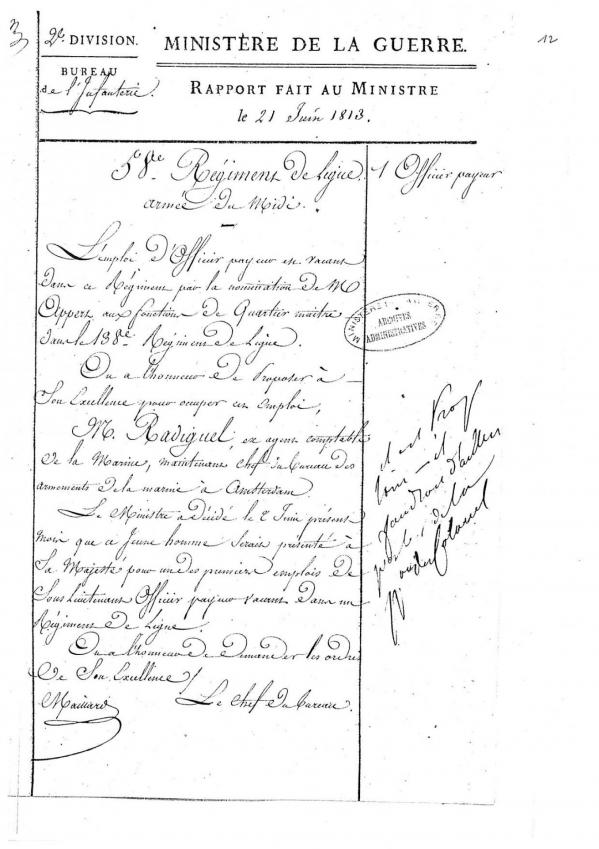 12
2e. DIVISION.
BUREAU
de l'Infanterie.
MINISTÈRE DE LA GUERRE.
RAPPORT FAIT AU MINISTRE
le 21 Juin 1813.
58e. Régiment de Ligne.
armée du Midi.
1 Officier payeur
L'emploi d'Officier payeur est vacant
dans ce Régiment par la nomination de M
Appert aux fonctions de Quartier maitre
dans le 138e Régiment de Ligne.
On a l'honneur de Proposer à
Son Excellence pour occuper cet Emploi,
M. Radiguel, ex agent comptable
de la Marine, maintenant chef du Bureau des
armements de la marine à Amsterdam.
Le Ministre a décidé le 2 Juin présent
mois que ce Jeune homme serait présenté à
Sa Majesté pour un des premiers emplois de
Sous Lieutenant Officier payeur vacant dans un
Régiment de Ligne.
On a l'honneur de demander les ordres
de Son Excellence
Maillard
Le Chef du Bureau.
MINISTERE DE LA GUERRE
ARCHIVES
ADMINISTRATIVES
il est
il
faudrait d'ailleurs
de la
du Colonel